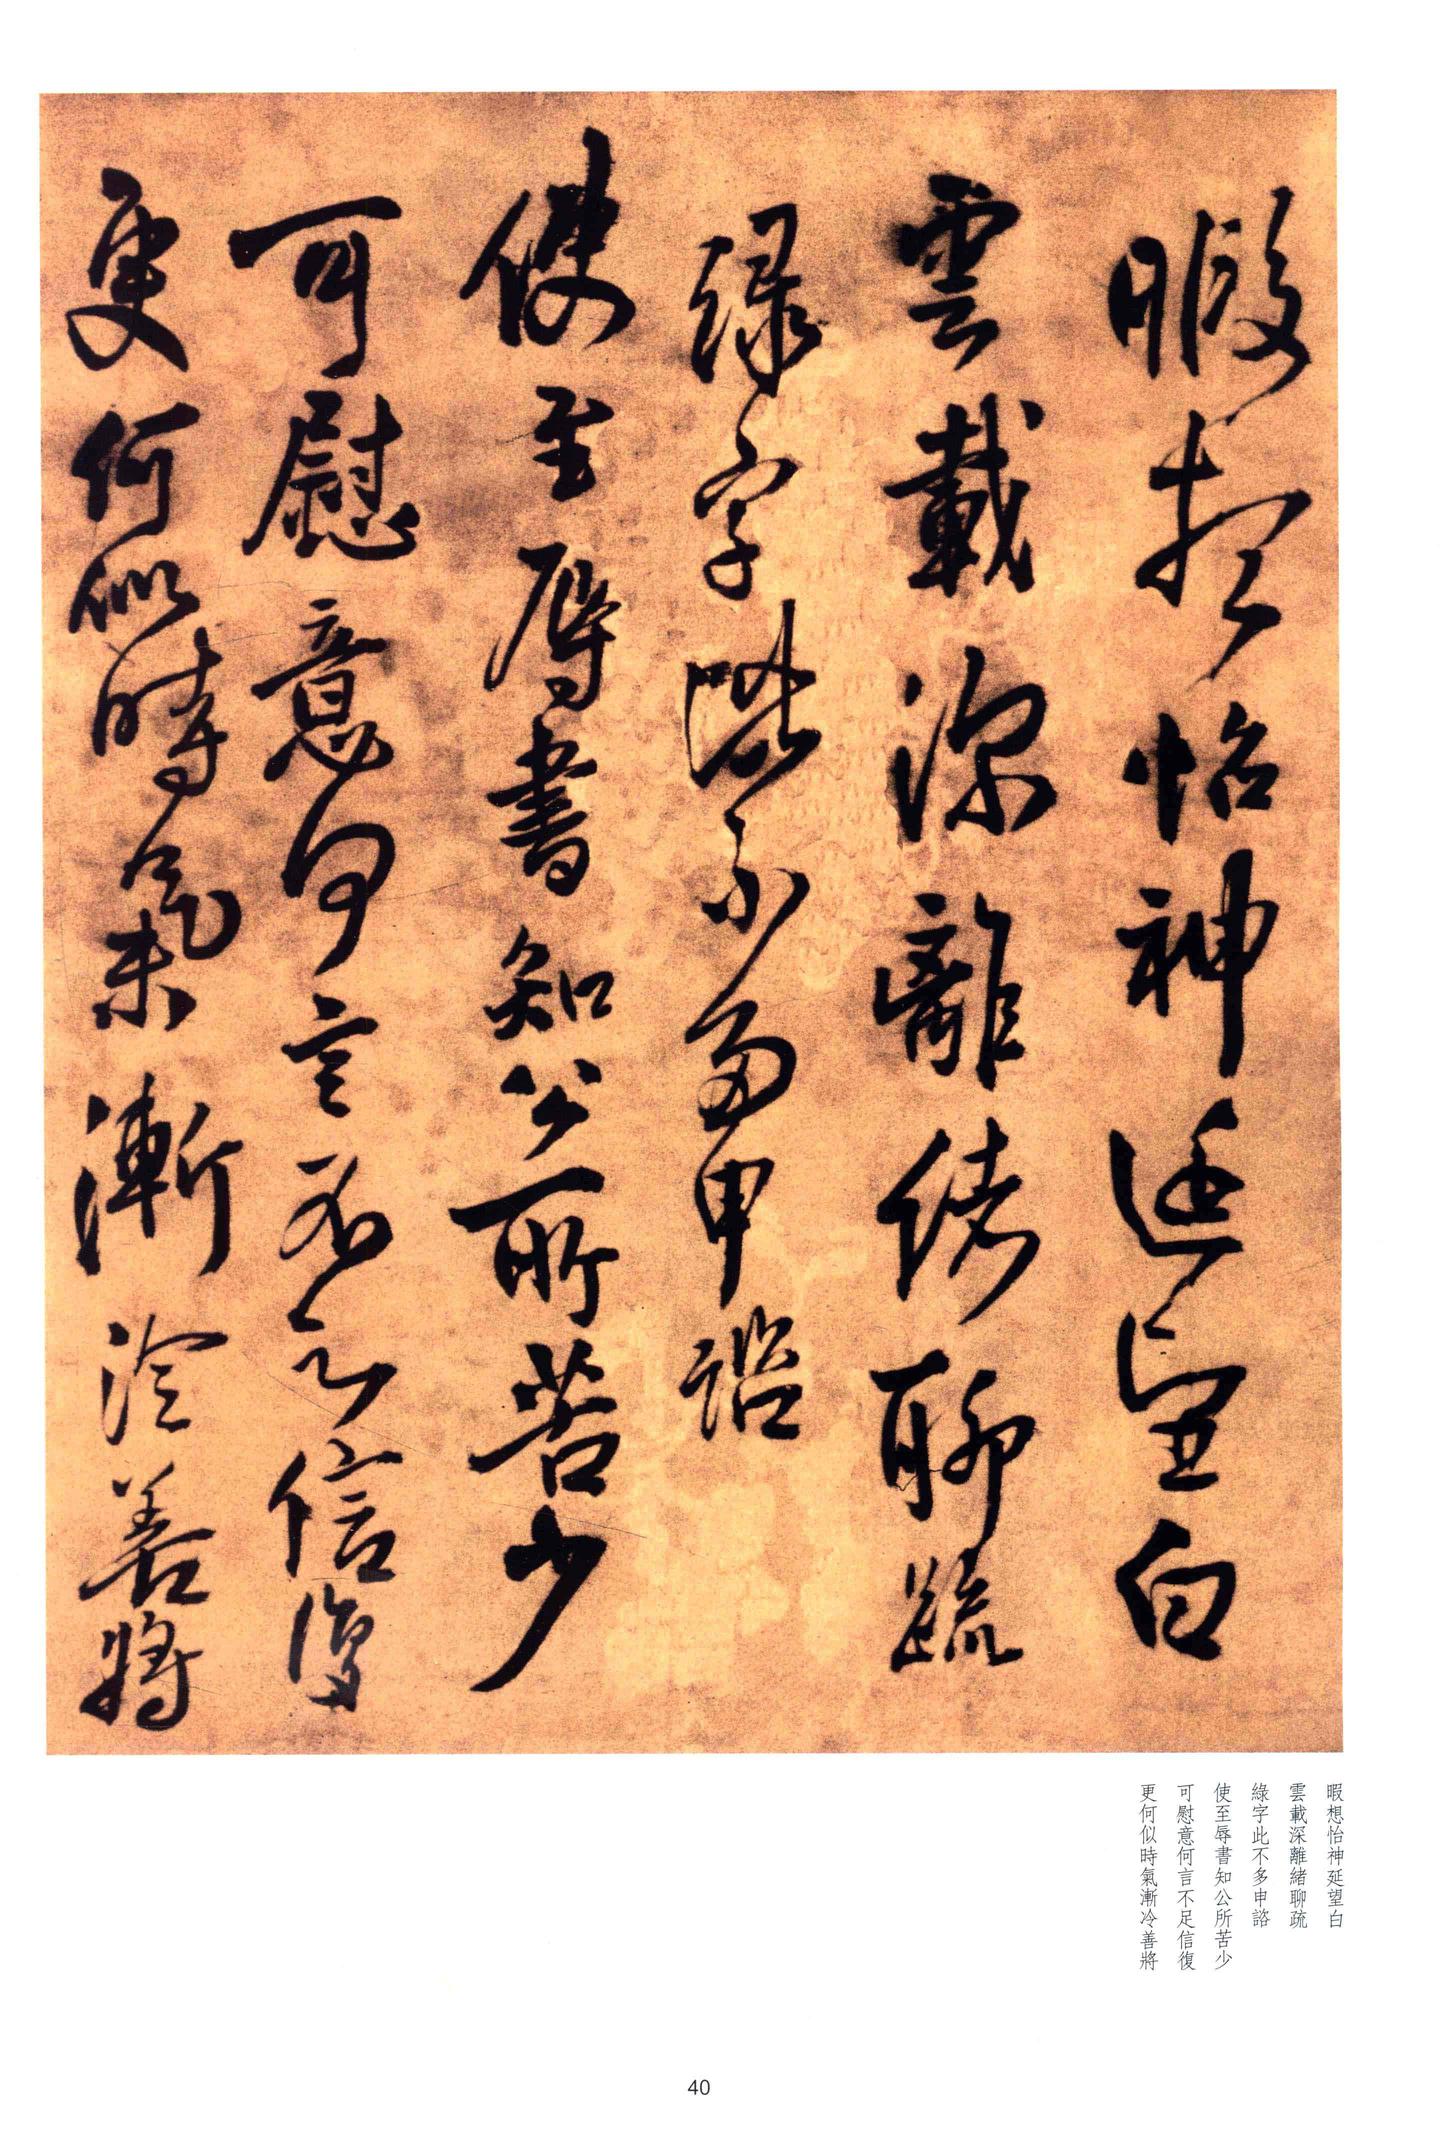 暇想怡神延望白
雲載深離緒聊疏
綠字此不多申諮
使至辱書知公所苦少
可慰意何言不足信復
更何似時氣漸冷善將
暇想怡神延望白
雲載深離緒聊疏
綠字此不多申諮
使至辱書知公所苦少
可慰意何言不足信復
更何似時氣漸冷善將
40